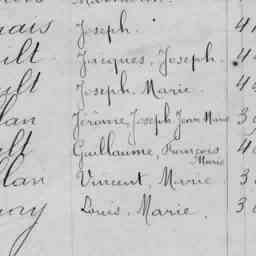 uais Joseph. 4
ilt Jacques, Joseph. 4
ult Joseph Marie. 4
lan Jérôme, Joseph Jean Marie 3
lt Guillaume, François Marie 4
lan Vincent, Marie. 3
uay Louis, Marie. 3